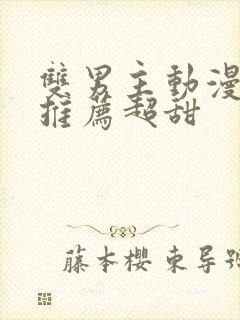 雙男主動漫
推薦超甜
藤本櫻 東导